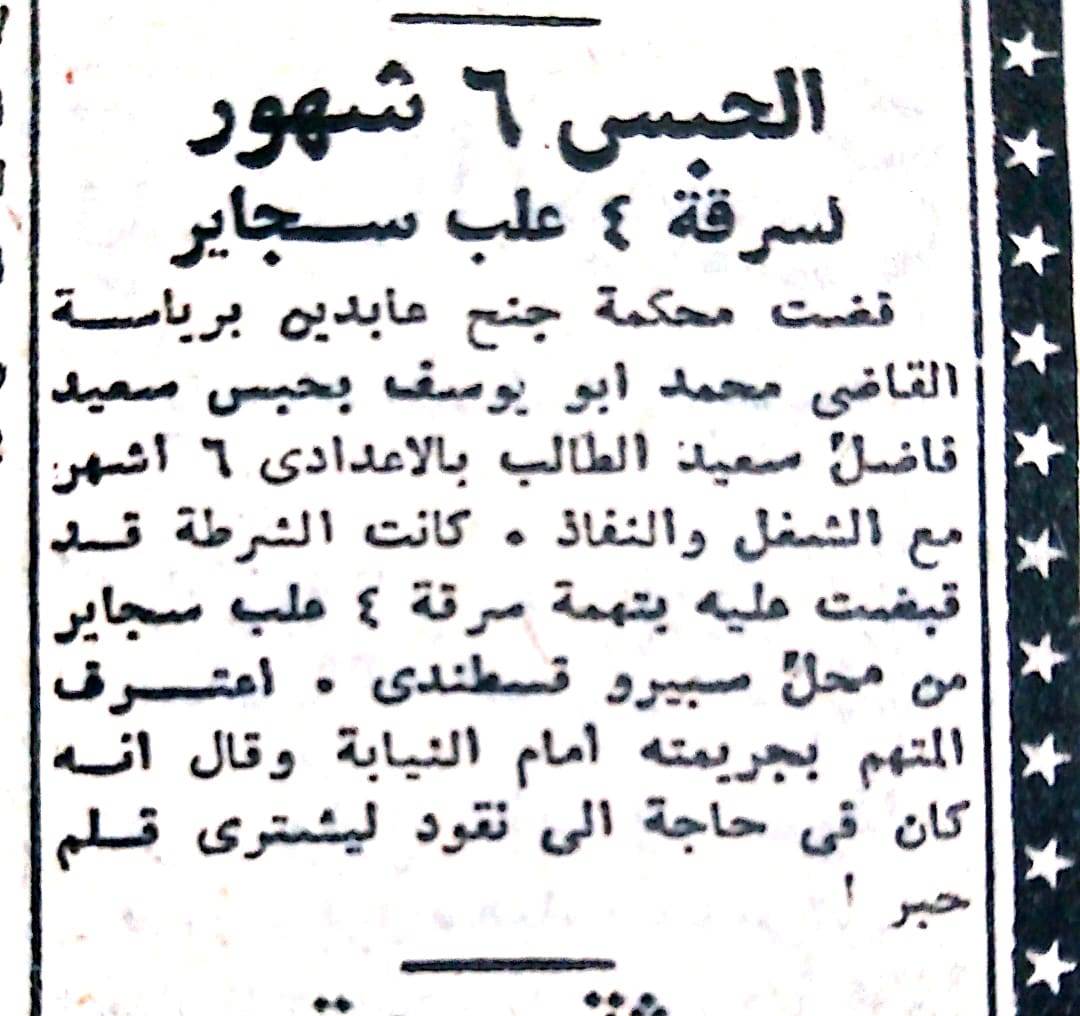 الحبس ٦ شهور
لسرقة ٤ علب سجاير
قضت محكمة جنح عابدين برياسة
القاضى محمد ابو يوسف بحبس سعيد
فاضل سعيد الطالب بالاعدادى ٦ أشهر
مع الشغل والنفاذ . كانت الشرطة قد
قبضت عليه بتهمة سرقة ٤ علب سجاير
من محل سبيرو قسطندى . اعترف
المتهم بجريمته أمام النيابة وقال انه
كان فى حاجة الى نقود ليشترى قلم
حبر !